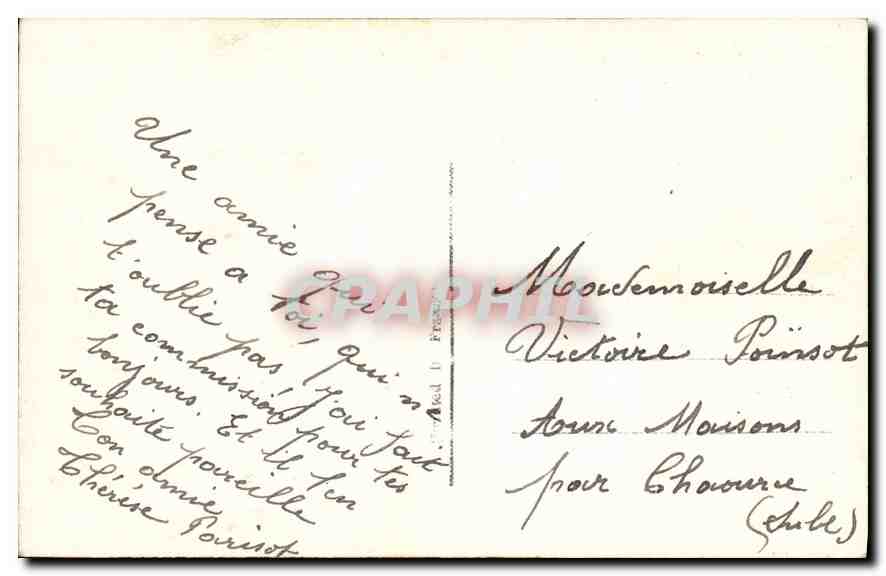 Une amie qui
pense a toi, qui ne
t'oublie pas, j'ai fait
ta commission pour tes
bonjours. Et il t'en
souhaite pareille
Ton amie
Thérèse Parisot
CPAPHIL
Mademoiselle
Victoire Poïnsot
Aux Maisons
par Chaource
(Aube)